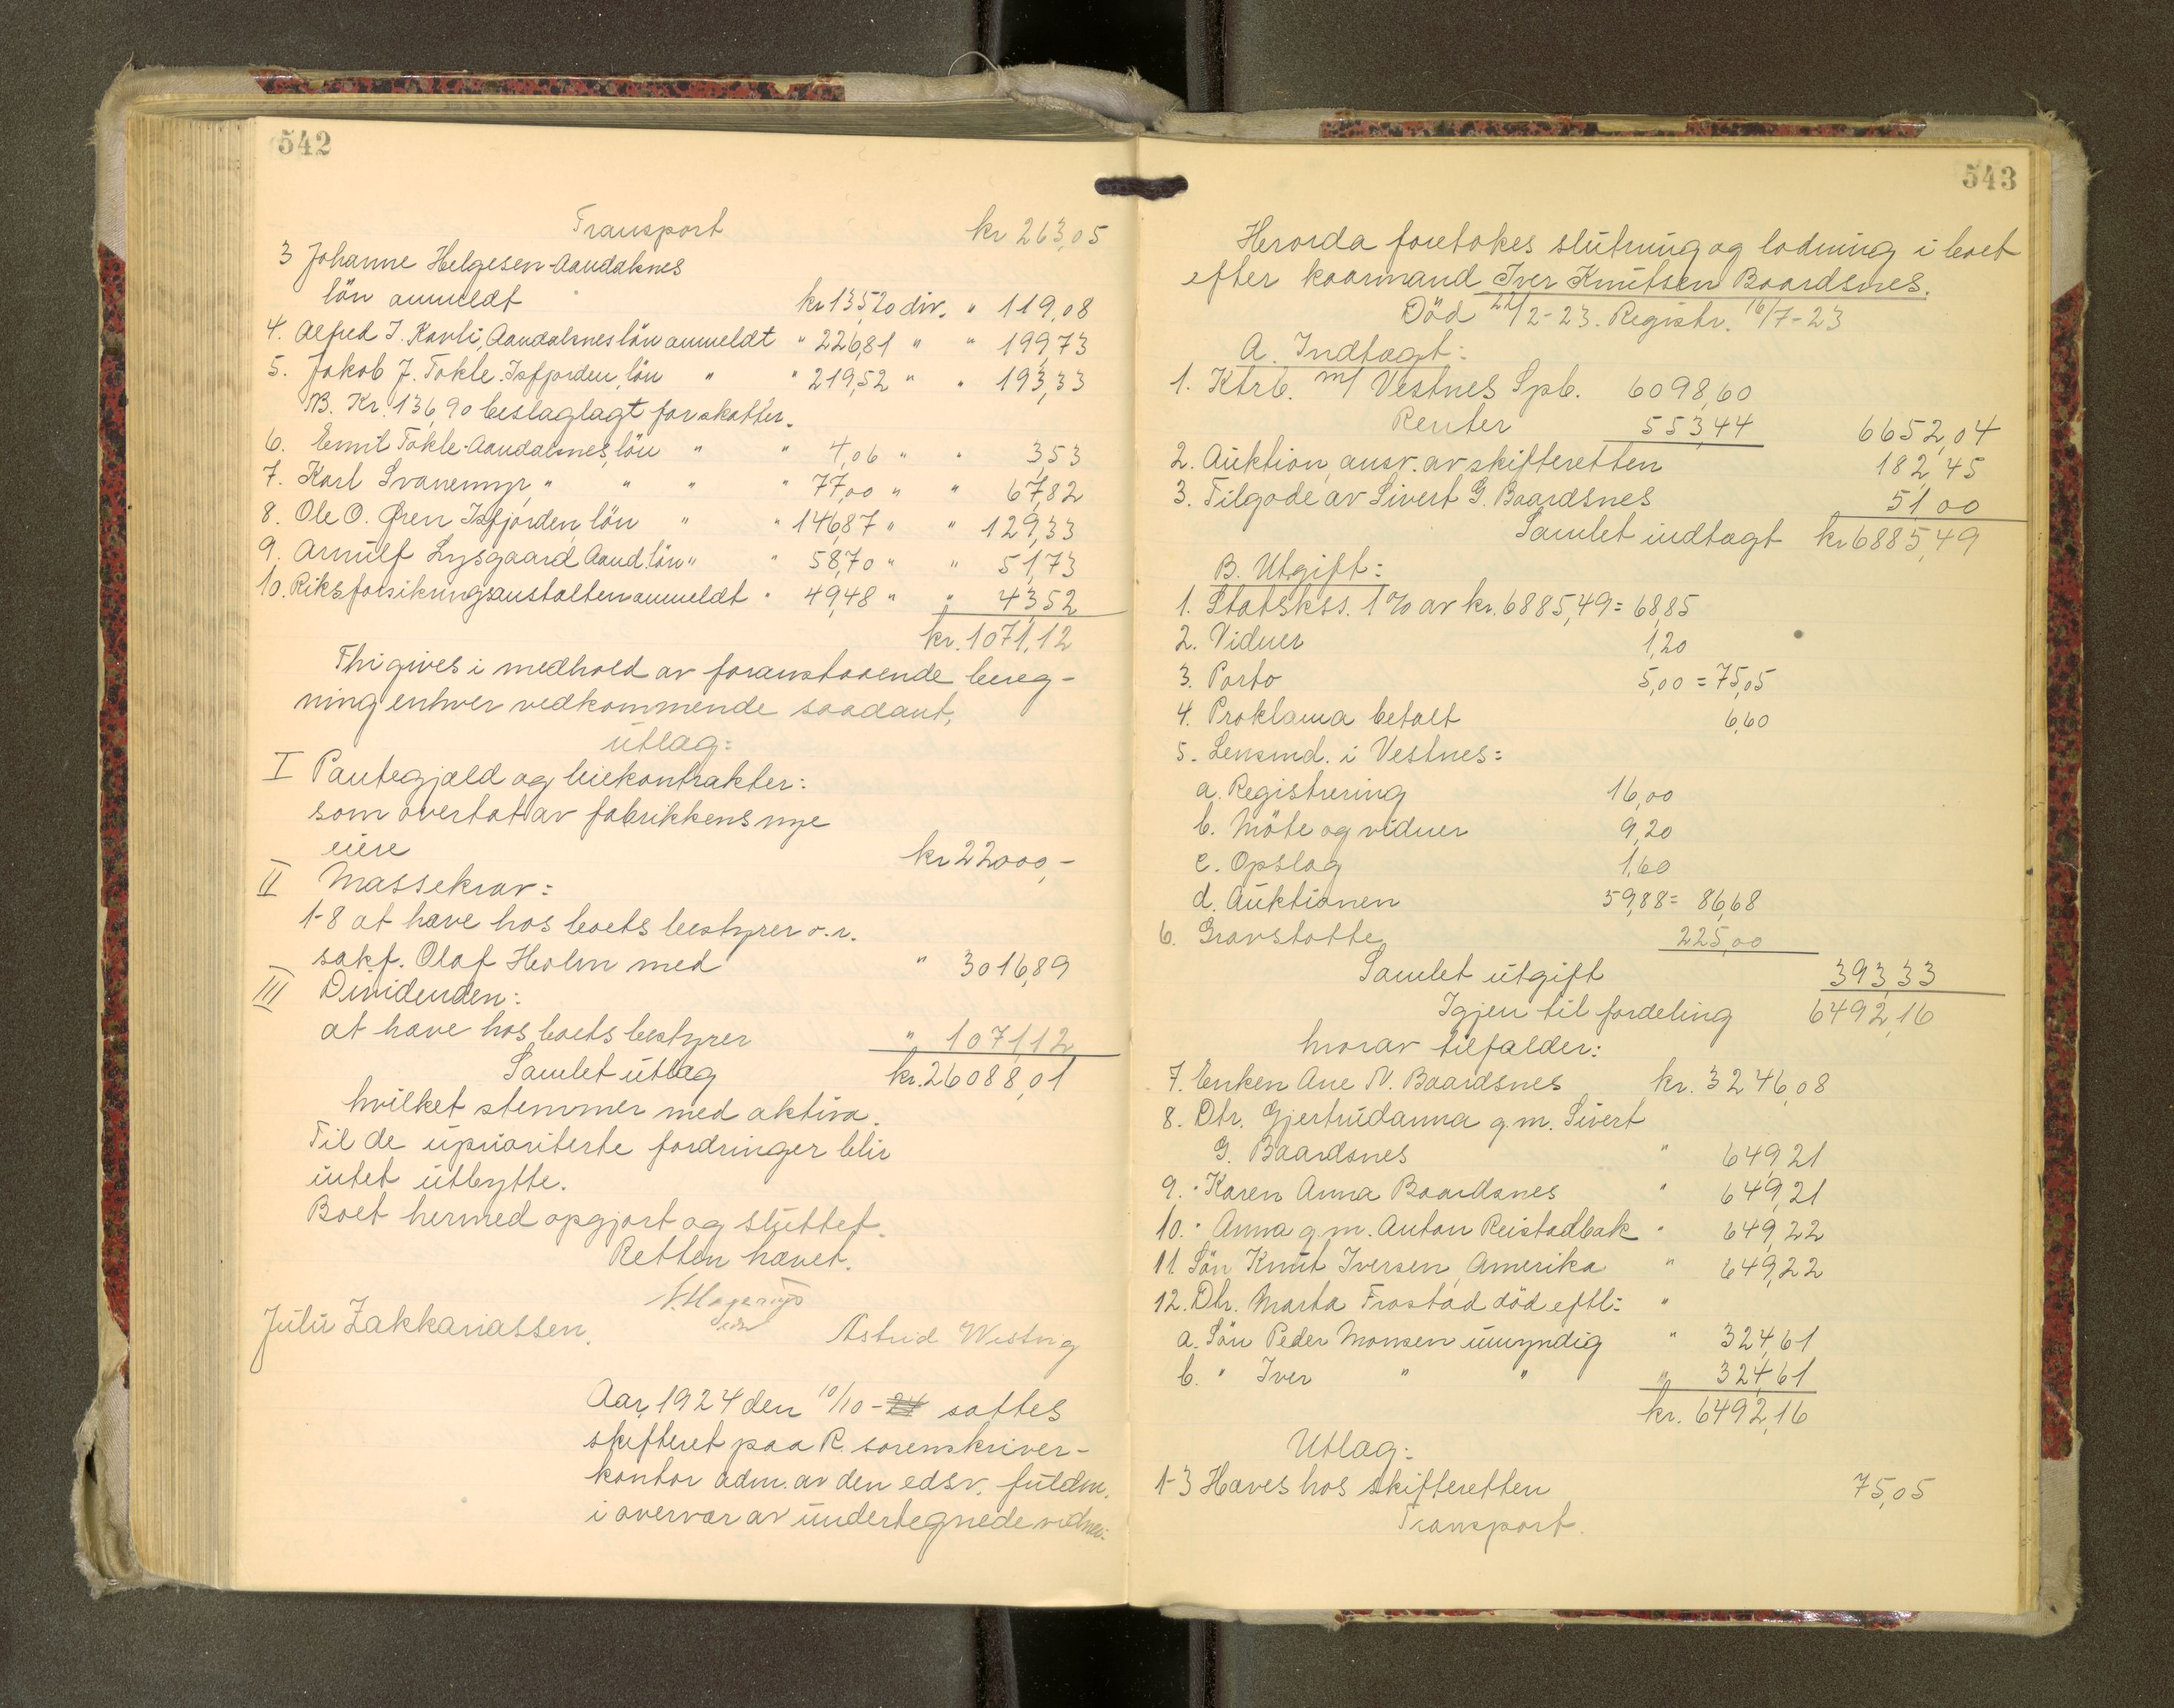 542
Transport kr 263,05
3 Johanne Helgesen Aandalsnes
lön anmeldt kr 135,20 div. " 119,08
4. Alfred J. Kavli, Aandalsnes lön anmeldt " 226,81 " " 199,73
5. Jakob J. Tokle. Isfjorden, lön " " 219,52 " " 193,33
NB. Kr. 136,90 beslaglagt for skatter.
6. Emil Tokle Aandalsnes, lön " " 4,06 " " 3,53
7. Karl Svanemyr, " " " " 77,00 " " 67,82
8. Ole O. Gren Isfjorden, lön " " 146,87 " " 129,33
9. Arnulf Lysgaard Aand. lön " " 58,70 " " 51,73
10. Riksforsikringsanstalten anmeldt " 49,48 " " 43,52
kr. 1071,12
Thi gives i medhold av foranstaaende bereg-
ning enhver vedkommende saadant,
utlæg:
I Pantegjæld og leiekontrakter:
som overtat av fabrikkens nye
eiere kr 22000,-
II Massekrav:
1-8 at have hos boets bestyrer o.r.
sakf. Olaf Holm med " 3016,89
III Dividenden:
at have hos boets bestyrer " 1071,12
Samlet utlæg kr. 26088,01
hvilket stemmer med aktiva.
Til de uprioriterte fordringer blir
intet utbytte.
Boet hermed opgjort og sluttet.
Retten hævet.
Juliu Zakkariassen. Astrid Westvig
Aar 1924 den 10/10 - 24 sattes
skifteret paa R. sorenskriver-
kontor adm. av den edsv. fuldm.
i overvær av undertegnede vidner:
543
Herorda foretokes slutning og lodning i boet
efter kaarmand Iver Knutsen Baardsnes.
Död 22/2-23. Registr. 16/7-23
A. Indtægt:
1. Ktrb. m/ Vestnes Spb. 6098,60
Renter 553,44 6652,04
2. Auktion, ansv. av skifteretten 182,45
3. Tilgode av Sivert G. Baardsnes 51 00
Samlet indtægt kr 6885,49
B. Utgift:
1. Statskss. 1 % av kr. 6885,49 = 68,85
2. Vidner 1,20
3. Porto 5,00 = 75,05
4. Proklama betalt 6,60
5. Lensmd. i Vestnes:
a. Registrering 16,00
b. Möte og vidner 9,20
c. Opslag 1,60
d. Auktionen 59,88 = 86,68
6. Gravstøtte 225,00
Samlet utgift 393,33
Igjen til fordeling 6492,16
hvorav tilfalder:
7. Enken Ane N. Baardsnes kr. 3246,08
8. Dtr. Gjertrudanna g.m. Sivert
G. Baardsnes " 649,21
9. " Karen Anna Baardsnes " 649,21
10. " Anna g.m. Anton Reistadbak " 649,22
11. Sön Knut Iversen, Amerika " 649,22
12. Dtr. Marta Frostad död eftl: "
a. Sön Peder Monsen umyndig " 324,61
b. " Iver " " " 324,61
kr. 6492,16
Utlæg:
1-3 Haves hos skifteretten 75,05
Transport.